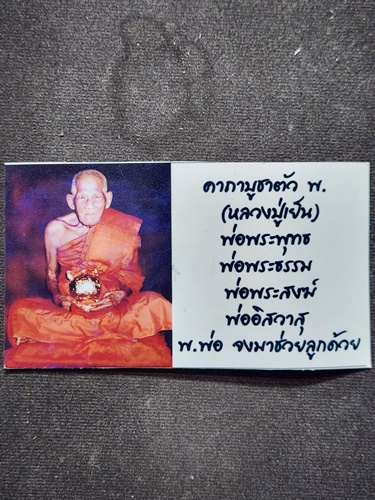 คาถาบูชาตัว พ.
(หลวงปู่เย็น)
พ่อพระพุทธ
พ่อพระธรรม
พ่อพระสงฆ์
พ่ออิสวาสุ
พ.พ่อ จงมาช่วยลูกด้วย